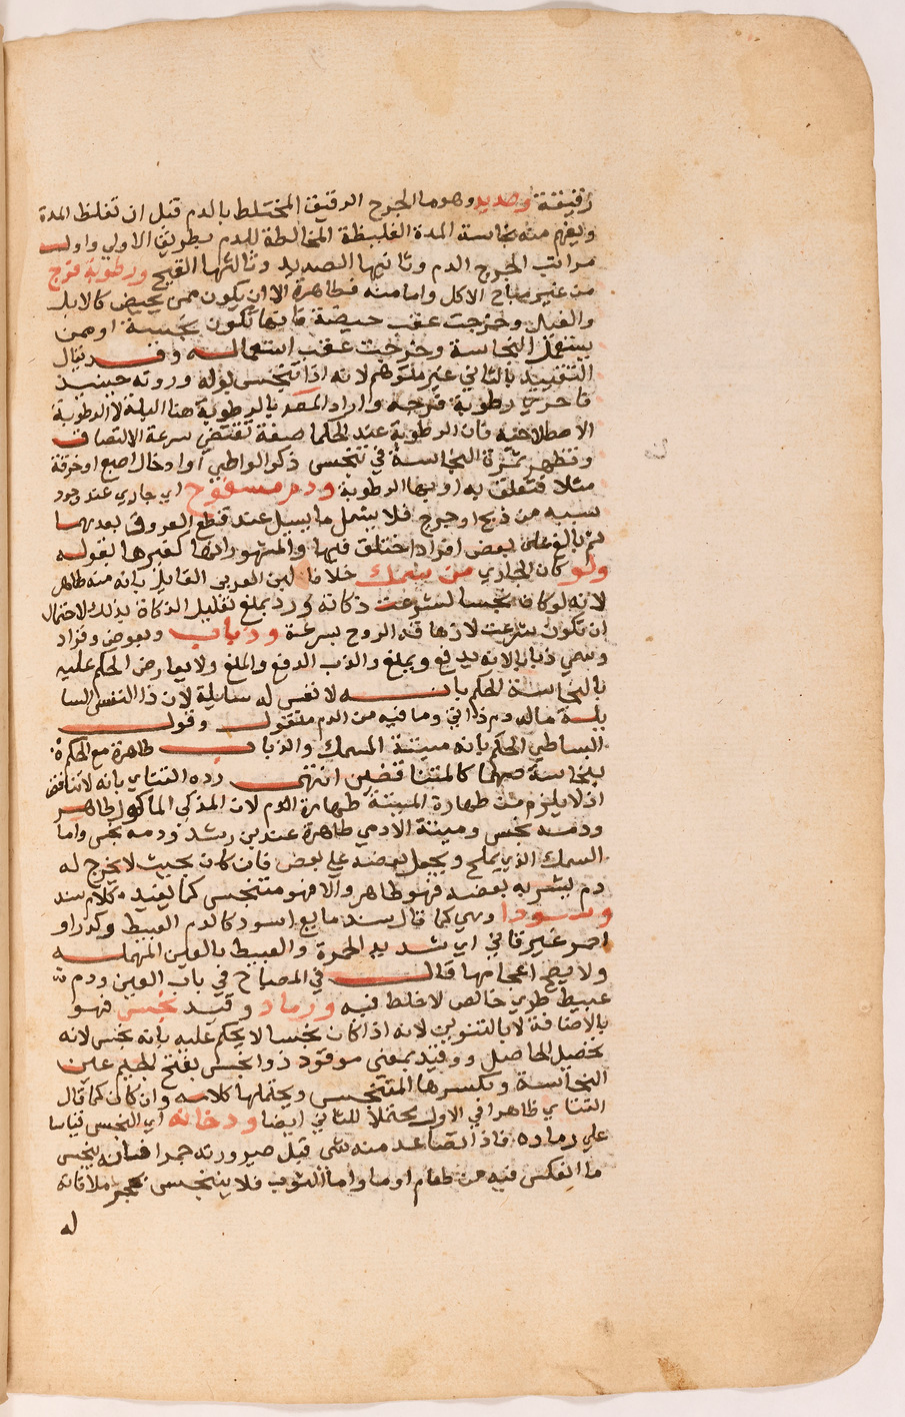 رقيقة وصديد وهو ما الجرح الرقيق المختلط بالدم قبل ان تغلظ المدة
ويفهم منه نجاسة المدة الغليظة المخالطة للدم بطريق الاولي واول
مراتب الجرح الدم وثانيها الصديد وثالثها القيح ورطوبة فرج
من غير مباح الاكل واما منه فطاهرة الا ان يكون ممن يحيض كالابل
والفيل وخرجت عقب حيضة فانها تكون نجسة او ممن
يستعمل النجاسة وخرجت عقب استعماله وقد يقال
التقييد بالثاني غير ملتوهم لانه اذا تنجس بوله وروثه حينيذ
فاحري رطوبة فرجه واراد المص بالرطوبة هنا البلة لا الرطوبة
الاصطلاحية فان الرطوبة عند الحكما صفة تقتضي سرعة الالتصاق
وتظهر ثمرة النجاسة في تنجس ذكر الواطي او ادخال اصبع او خرقة
مثلا فتعلق به او بها الرطوبة ودم مسفوح اي جاري عند وجود
سببه من ذبح او جرح فلا يشمل ما يسيل عند قطع العروق بعدهما
ثم بالغ علي بعض افراد اختلف فيها والمشهور انها كغيرها بقوله
ولو كان الجاري من سمك خلافا لابن العربي القايل بانه منه طاهر
لانه لو كان نجسا لشرعت ذكاته ورد بملغ تعليل الذكاة بذلك لاحتمال
ان تكون شرعت لازهاق الروح بسرعة وذباب وبعوض وقراد
وسمي ذبابا لانه يدفع ويملغ والذب الدفع والملغ ولا يعارض الحكم عليه
بالنجاسة الحكم بانه لا نفس له سايلة لان ذا النفس السا
يلة ماله دم ذاتي وما فيه من الدم منقول وقول
البساطي الحكم بانه ميتة السمك والذباب طاهرة مع الحكم
بنجاسة دمهما كالمتناقضين انتهى رده التتاي بانه لا تناقض
اذ لا يلزم من طهارة الميتة طهارة الدم لان المذكي الماكول طاهر
ودمه نجس وميتة الادمي طاهرة عند بن رشد ودمه نجس واما
السمك الذي يملح ويجعل بعضه علي بعض فان كان بحيث لا يخرج له
دم يشربه بعضه فهو طاهر والا فهو متنجس كما يفيده كلام سند
وسودا وهي كما قال سند مايع اسود كالدم العبيط وكدر او
احمر غير قاني اي شديد الحمرة والعبيط بالعين المهملة
ولا يصح اعجامها قال في المصباح في باب العين ودم
عبيط طري خالص لا خلط فيه ورماد وقيد نجس فهو
بالاضافة لا بالتنوين لانه اذا كان نجسا لا يحكم عليه بانه نجس لانه
تحصيل الحاصل ووقيد بمعني موقود ذو انجس بفتح الجيم عين
النجاسة وبكسرها المتنجس ويحتملها كلامه وان كان كما قال
التتاي ظاهرا في الاول محتملا للثاني ايضا ودخانه اي النجس قياسا
علي رماده فاذا تصاعد منه شي قبل صيرورته جمرا فانه ينجس
ما انعكس فيه من طعام او ما واما الثوب فلا يتنجس بمجرد ملاقاته
له